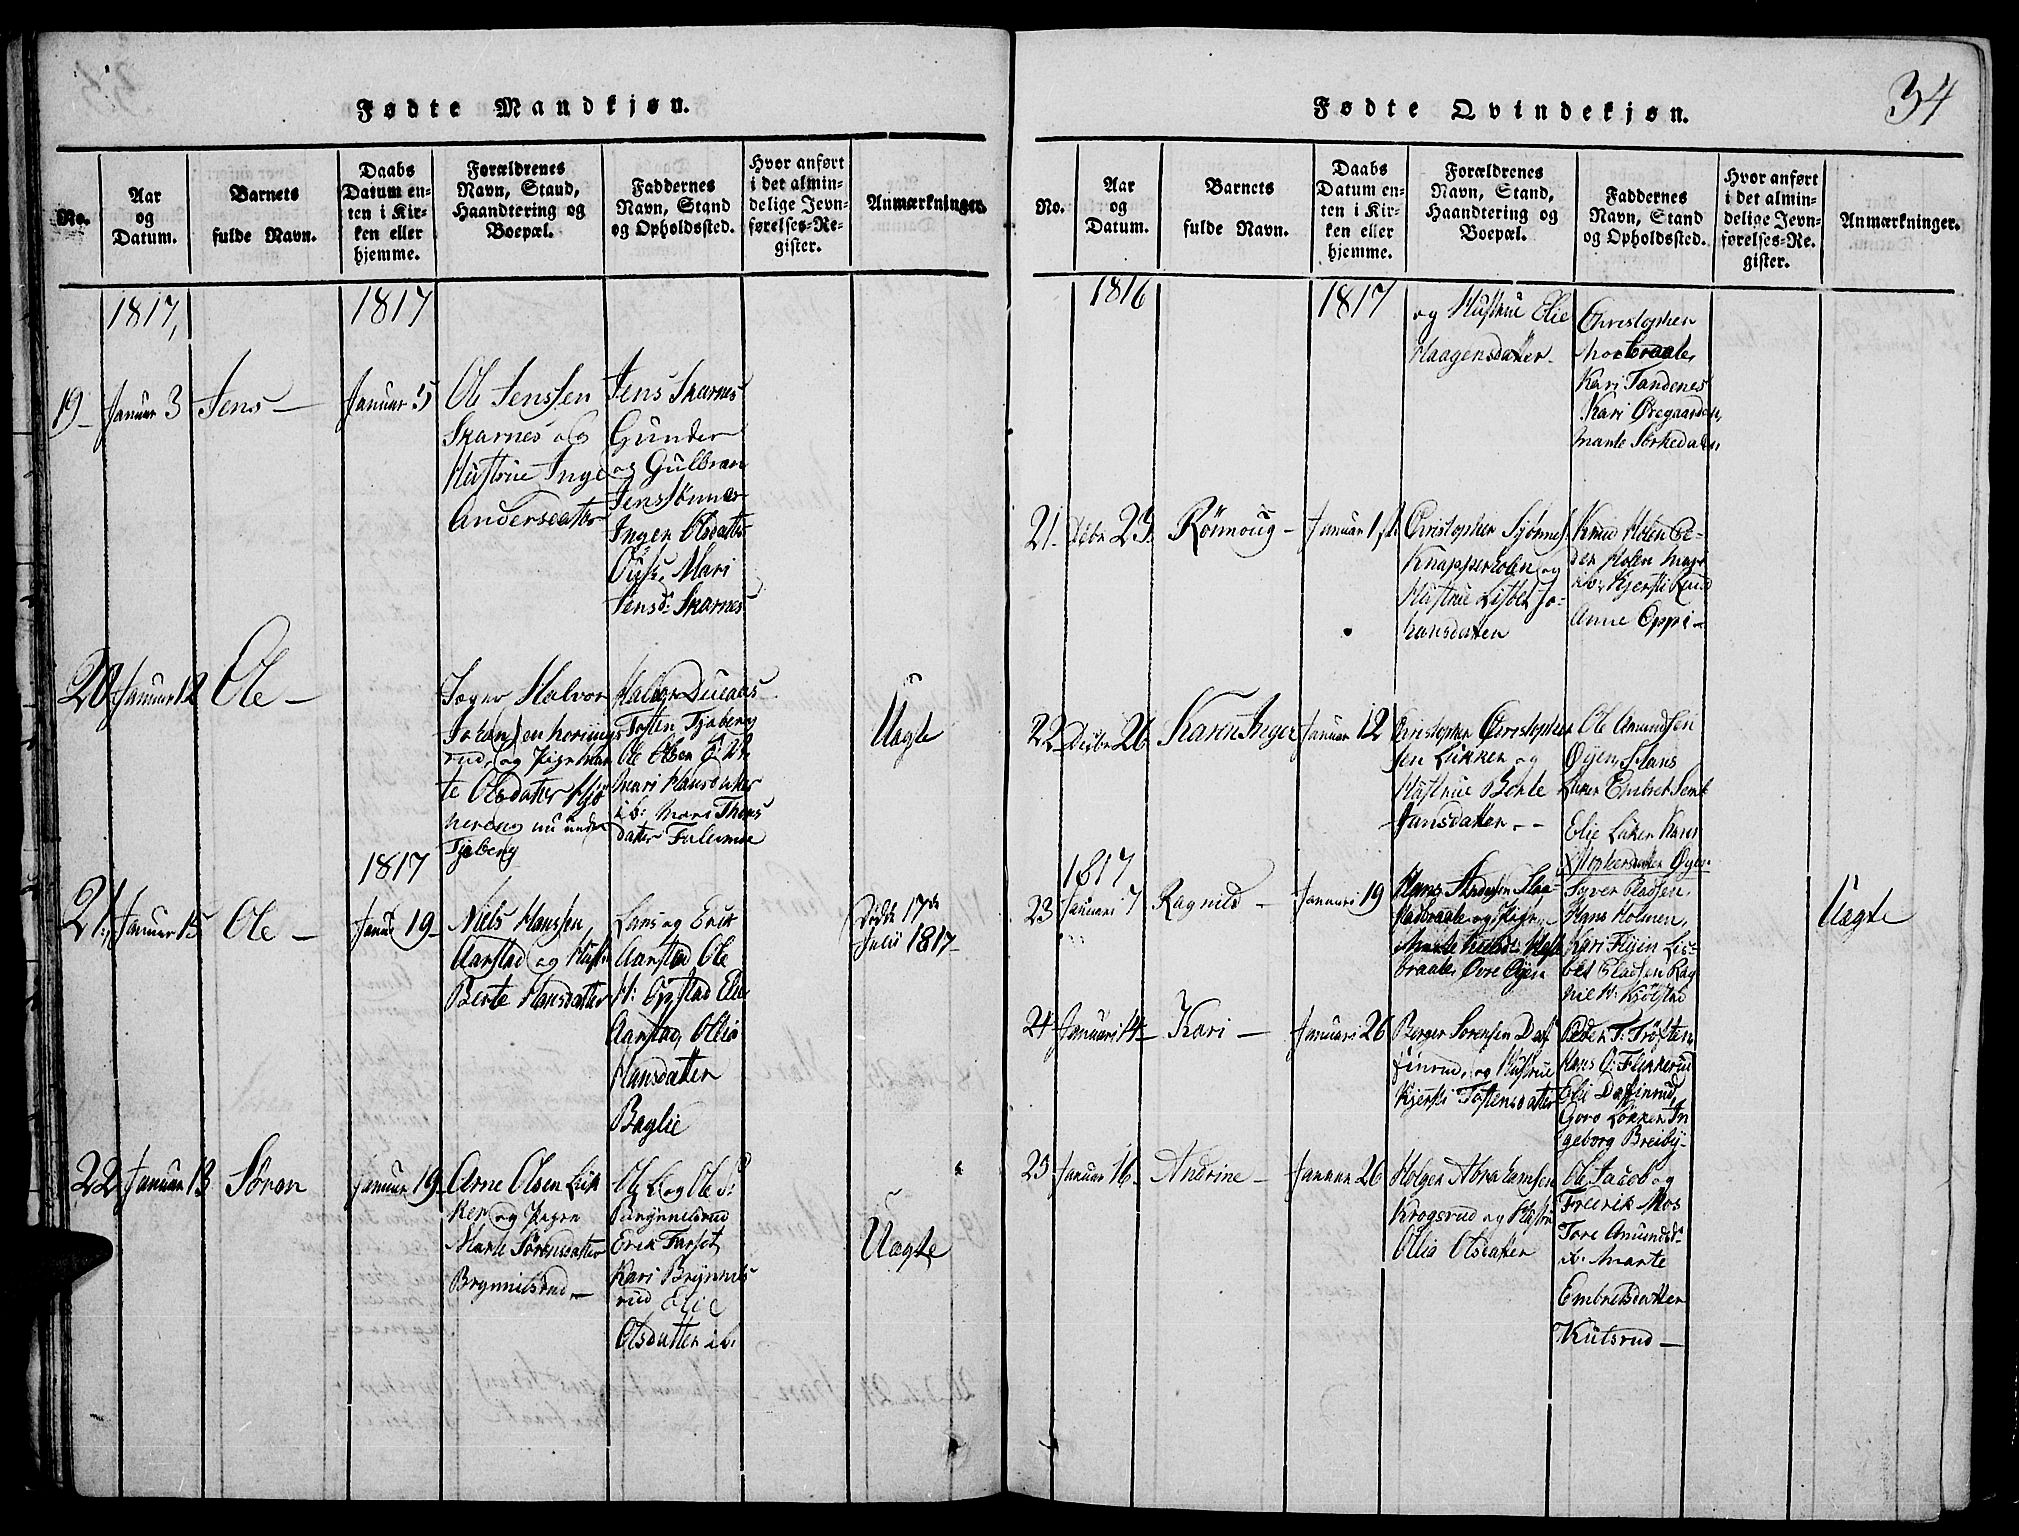 34
Fødte Mandkjøn.
No.
Aar
og
Datum.
Barnets
fulde Navn.
Daabs
Datum en-
ten i Kir-
ken eller
hjemme.
Forældrenes
Navn, Stand,
Haandtering og
Boepæl.
Faddernes
Navn, Stand
og Opholdssted.
Hvor anført
i det almin-
delige Jevn-
førelses-Re-
gister.
Anmærkninger.
1817,
1817
19-
Januar 3
Jens -
Januar 5
Ole Jenssen
Skarnes og
Hustrue Inge
Andersdatter
Jens Skarnes
Gunder
og Gulbran
Jenssønner
Ingen Olsdatter
Mari
Jensd: Skarnes
20
Januar 12
Ole -
Halvor
og Pige Mar
te Olsdatter
nu
Tjeberg
Halvor
Tosten Tjeberg
Ole Olsen
Mari Hansdatter
i.b: Mari Thors
datter
Uægte
1817
21
Januar 15
Ole -
Janur 19-
Niels Hanssen
Aarstad og Hustr
Berte Hansdatter
Lars og Erik
Aarstad Ole
H: Opstad Elie
Aarstad, Ollia
Hansdatter
Baglie
Døde 17de
Julii 1817-
22
Januar 13
Søren
Januar 19-
Arne Olsen Luk
ken og Pigen
Marte Sørensdatter
Brynnilsrud -
Ole L: og Ole S:
Brynnelsrud
Erik Farset
Kari Brynnils
rud Elie
Olsdatter i.b:
Uægte
Fødte Qvindekjøn.
No.
Aar
og
Datum.
Barnets
fulde Navn.
Daabs
Datum en-
ten i Kir-
ken eller
hjemme.
Forældrenes
Navn, Stand,
Haandtering og
Boepæl.
Faddernes
Navn, Stand
og Opholdssted.
Hvor anført
i det almin-
delige Jevn-
førelses-Re-
gister.
Anmærkninger.
1816
1817
og Hustrue Elie
Haagensdatter -
Christopher
Morbraate,
Kari Tandenes
Kari Øregaarden,
Marte Sørkedalen,
21-
Debr 23
Rønnoug -
Januar 1st
Christopher
Knapperholen og
Hustrue Lisbet Jo-
hansdatter
Knud Holen Pe-
der Holen Mari
i.b: Kjersti Rund
Anne Oppi -
22
Debr 26
Karen Inger
Januar 12
Christopher Christopher
sen Lukken og
Hustrue Berte
Jansdatter - -
Ole Amundsen
Øyen Hans
Luken Embret Semb
Elie Luken Kari
Øyen
1817
23
Januari 7
Ragnild -
Januari 19
Hans
og Pigen
Marte
braate, Øvre Øyen
Syver Pladsen
Hans Holmen,
Kari Flyen Lis-
bet Pladsen Rag
nil H: Kjølstad
Uægte
24
Januari 14
Kari -
Januari 26
Berger Sørensen Daf
finrud, og Hustrue
Kjersti Tostensdatter
Peder T: Trøften
Hans O: Flikkerud
Elie Daffinrud,
Goro Løkken In
geborg Breiby-
25
Januar 16-
Andrine -
Januar 26
Holger Abrahamsen
Krogsrud og Hustru
Ollia Olsdatter
Ole Jacob og
Frederik Mos
Tore Amundsd:
i.b: Marte
Embretsdatter
Kulsrud -